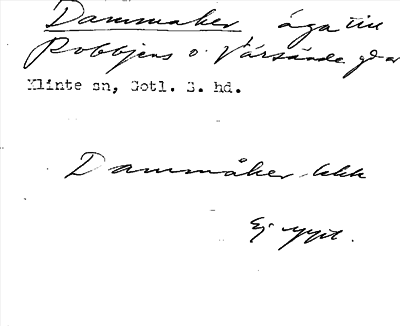 Dammaker äga till
Robbjens o. Värsände gd ar
Klinte sn, Gotl. S. hd.
Dammåker
Ej